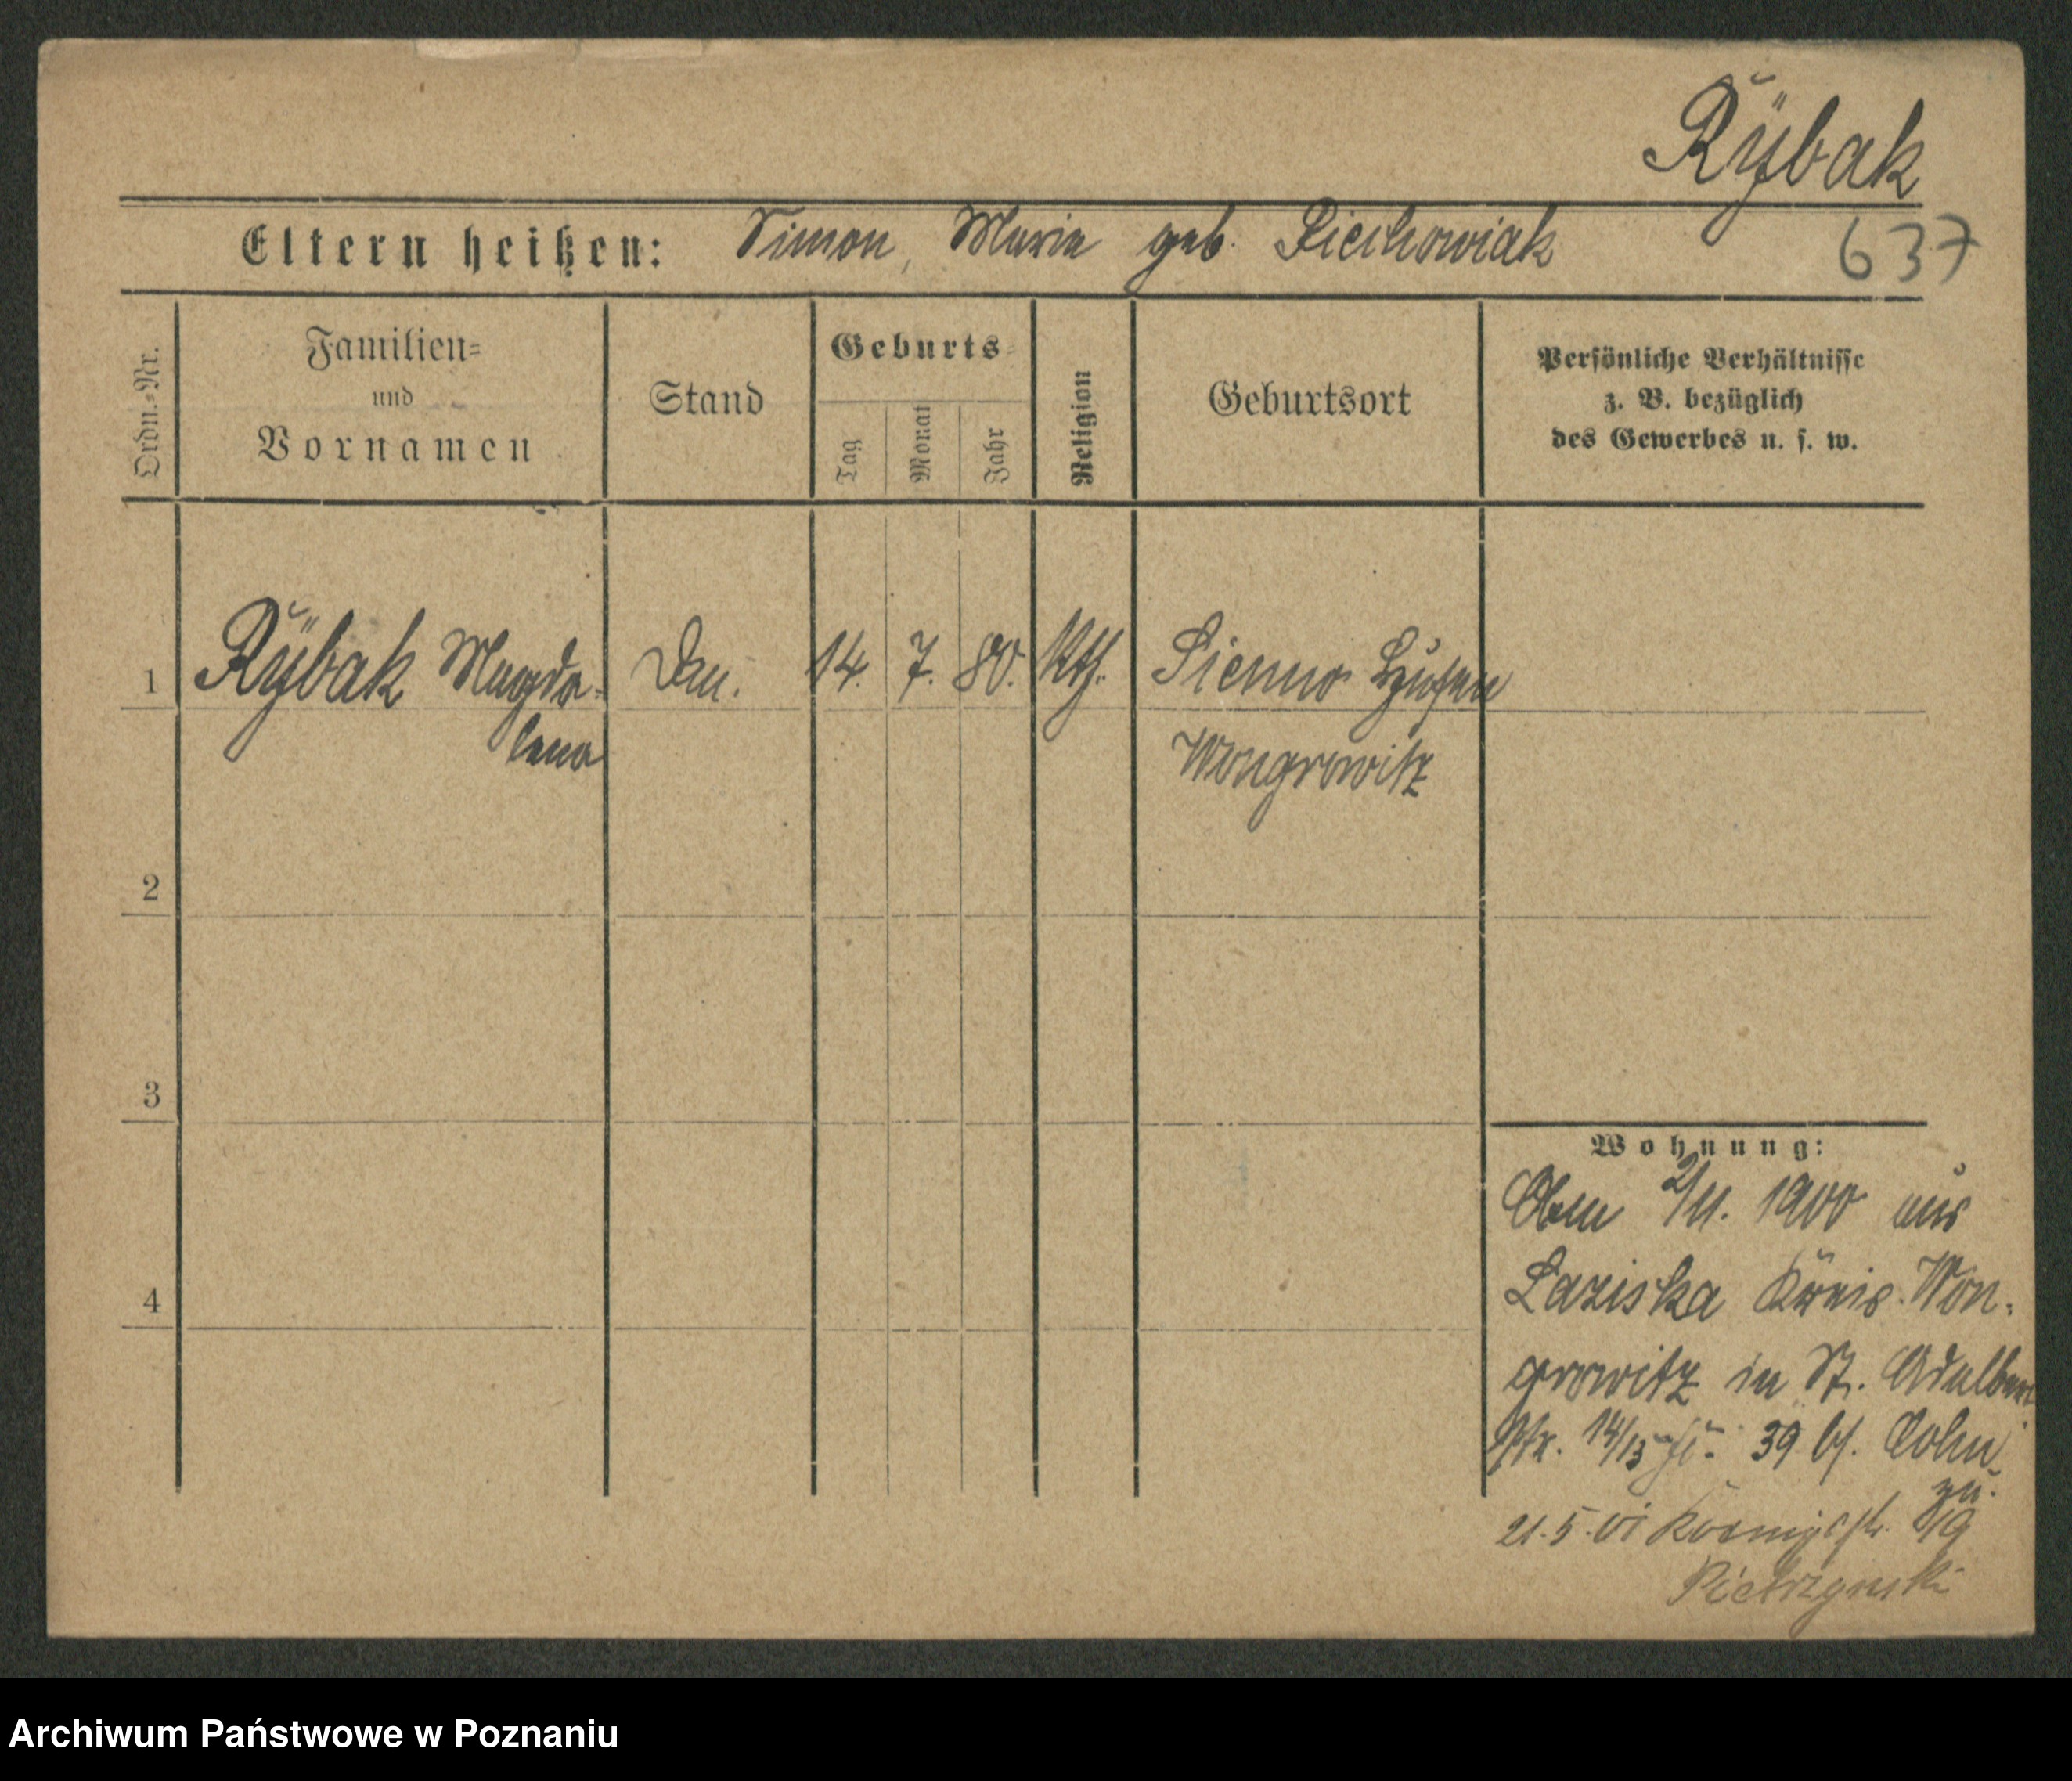 Rÿbak
Eltern heißen: Simon, Maria geb. Piechowiak
637
Ordn.-Nr.
Familien-
und
Vornamen
Stand
Geburts-
Tag
Monat
Jahr
Religion
Geburtsort
Persönliche Verhältnisse
z. B. bezüglich
des Gewerbes u. s. w.
1 Rÿbak Magda- 14. 7. 80. Kth. Sienno
lena Wongrowitz
2
3
4
Wohnung:
2/11. 1900 aus
Laziska Kreis Won-
growitz in St. Adalbert
Str. 14/15 39 bs. Cohn
zu.
21.5.01 Koenigsstr. 19
Pietrzynski
Archiwum Państwowe w Poznaniu